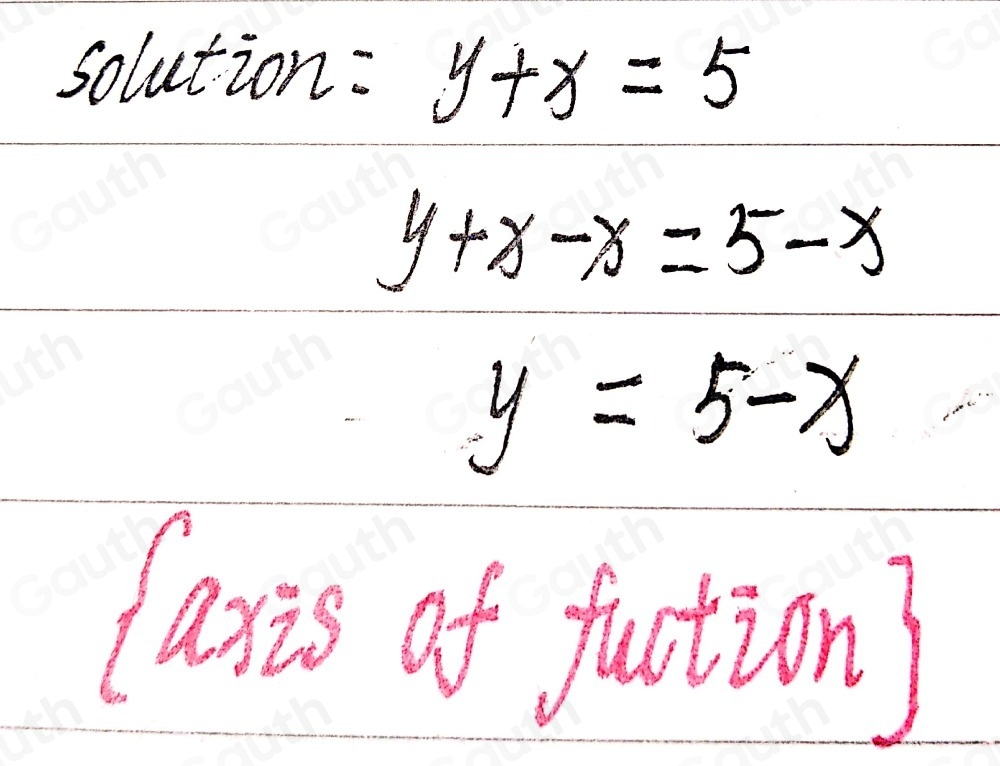 solution: y+x = 5
y+x-x=5-x
y = 5-x
{axis of fuction}